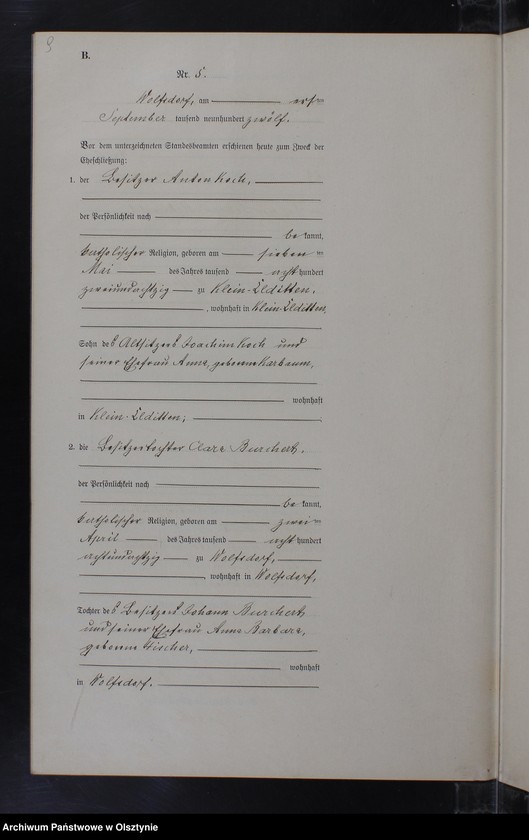 9
B.
Nr. 5.
Wolfsdorf, am ersten
September tausend neunhundert zwölf.
Vor dem unterzeichneten Standesbeamten erschienen heute zum Zweck der
Eheschließung:
1. der Besitzer Anton Koch,
der Persönlichkeit nach
bekannt,
katholischer Religion, geboren am sieben ten
Mai des Jahres tausend acht hundert
zweiundachtzig zu Klein-Elditten,
, wohnhaft in Klein-Elditten,
Sohn des Altsitzers Joachim Koch und
seiner Ehefrau Anna, geborene Karbaum,
wohnhaft
in Klein-Elditten;
2. die Besitzertochter Clara Burchert,
der Persönlichkeit nach
bekannt,
katholischer Religion, geboren am zwei ten
April des Jahres tausend acht hundert
achtundachtzig zu Wolfsdorf,
, wohnhaft in Wolfsdorf,
Tochter des Besitzers Johann Burchert
und seiner Ehefrau Anna Barbara,
geborene Fischer,
wohnhaft
in Wolfsdorf.
Archiwum Państwowe w Olsztynie